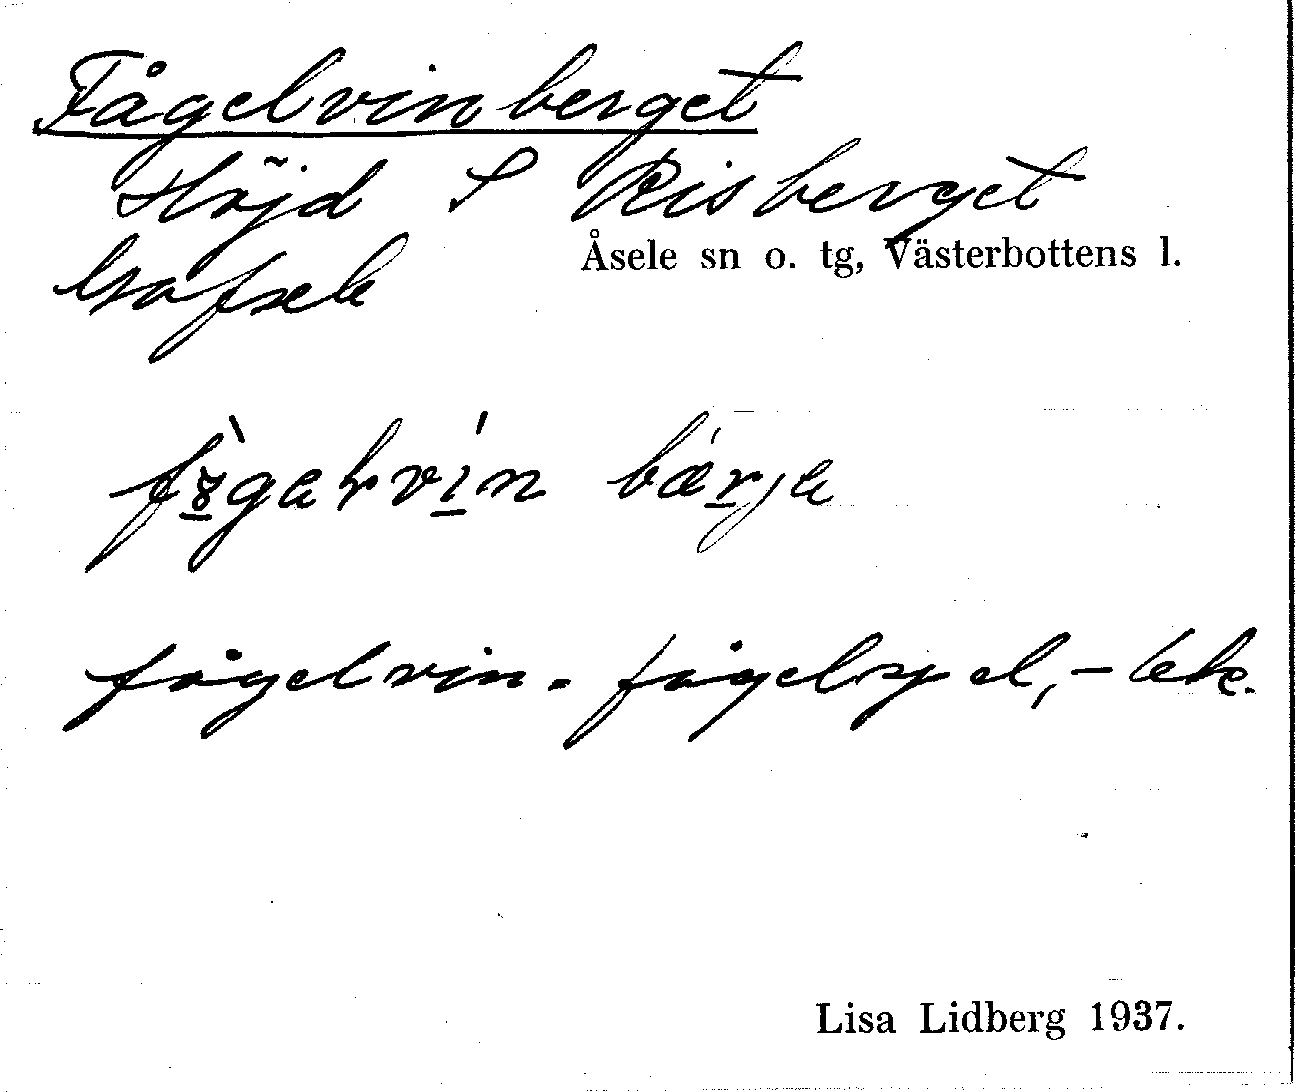 Fågelvinberget
Höjd S Risberget
Åsele sn o. tg, Västerbottens l.
Gafsele
fågelvin = fågelspel, -lek.
Lisa Lidberg 1937.